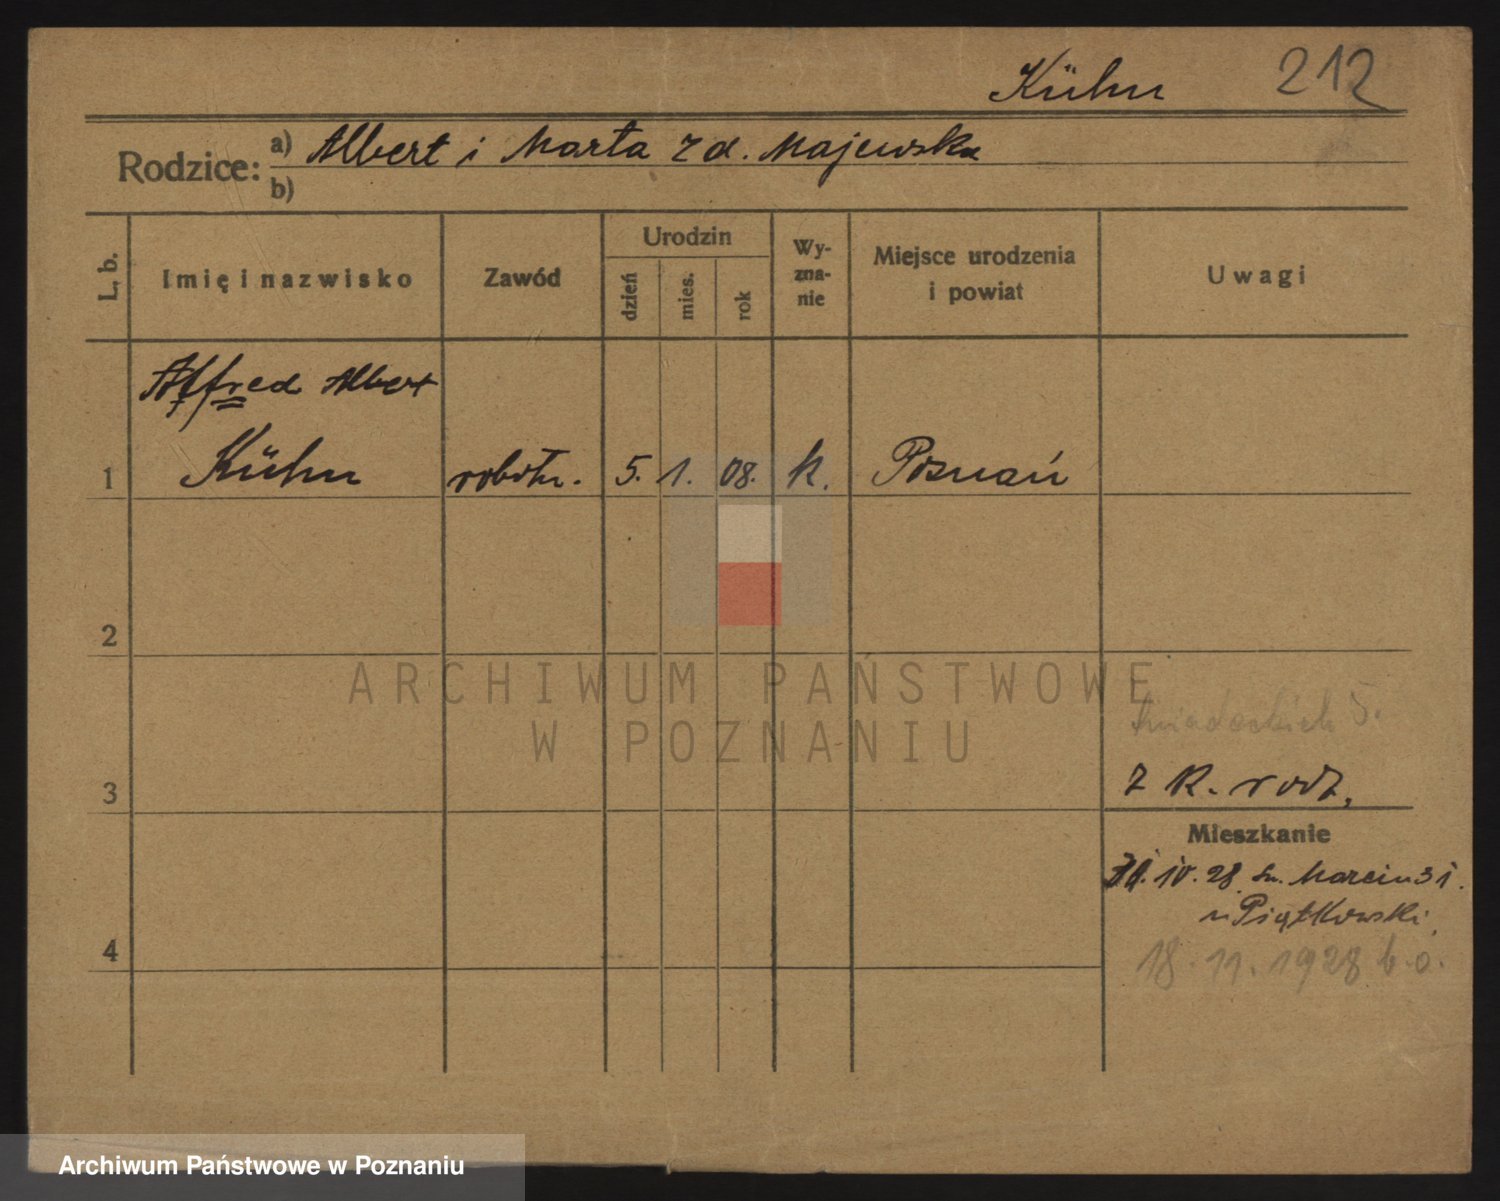 Kühn 212
Rodzice: a) Albert i Marta z d. Majewska
b)
L. b.
Imię i nazwisko
Zawód
Urodzin
dzień
mies.
rok
Wy-
zna-
nie
Miejsce urodzenia
i powiat
Uwagi
Alfred Albert
1 Kühn robotn. 5. 1. 08. k. Poznań
2
ARCHIWUM PAŃSTWOWE
W POZNANIU
5.
3 z K. rodz.
Mieszkanie
IV. 28. św. Marcin 31.
u Piątkowski
4
18.11.1928 b.o.
Archiwum Państwowe w Poznaniu